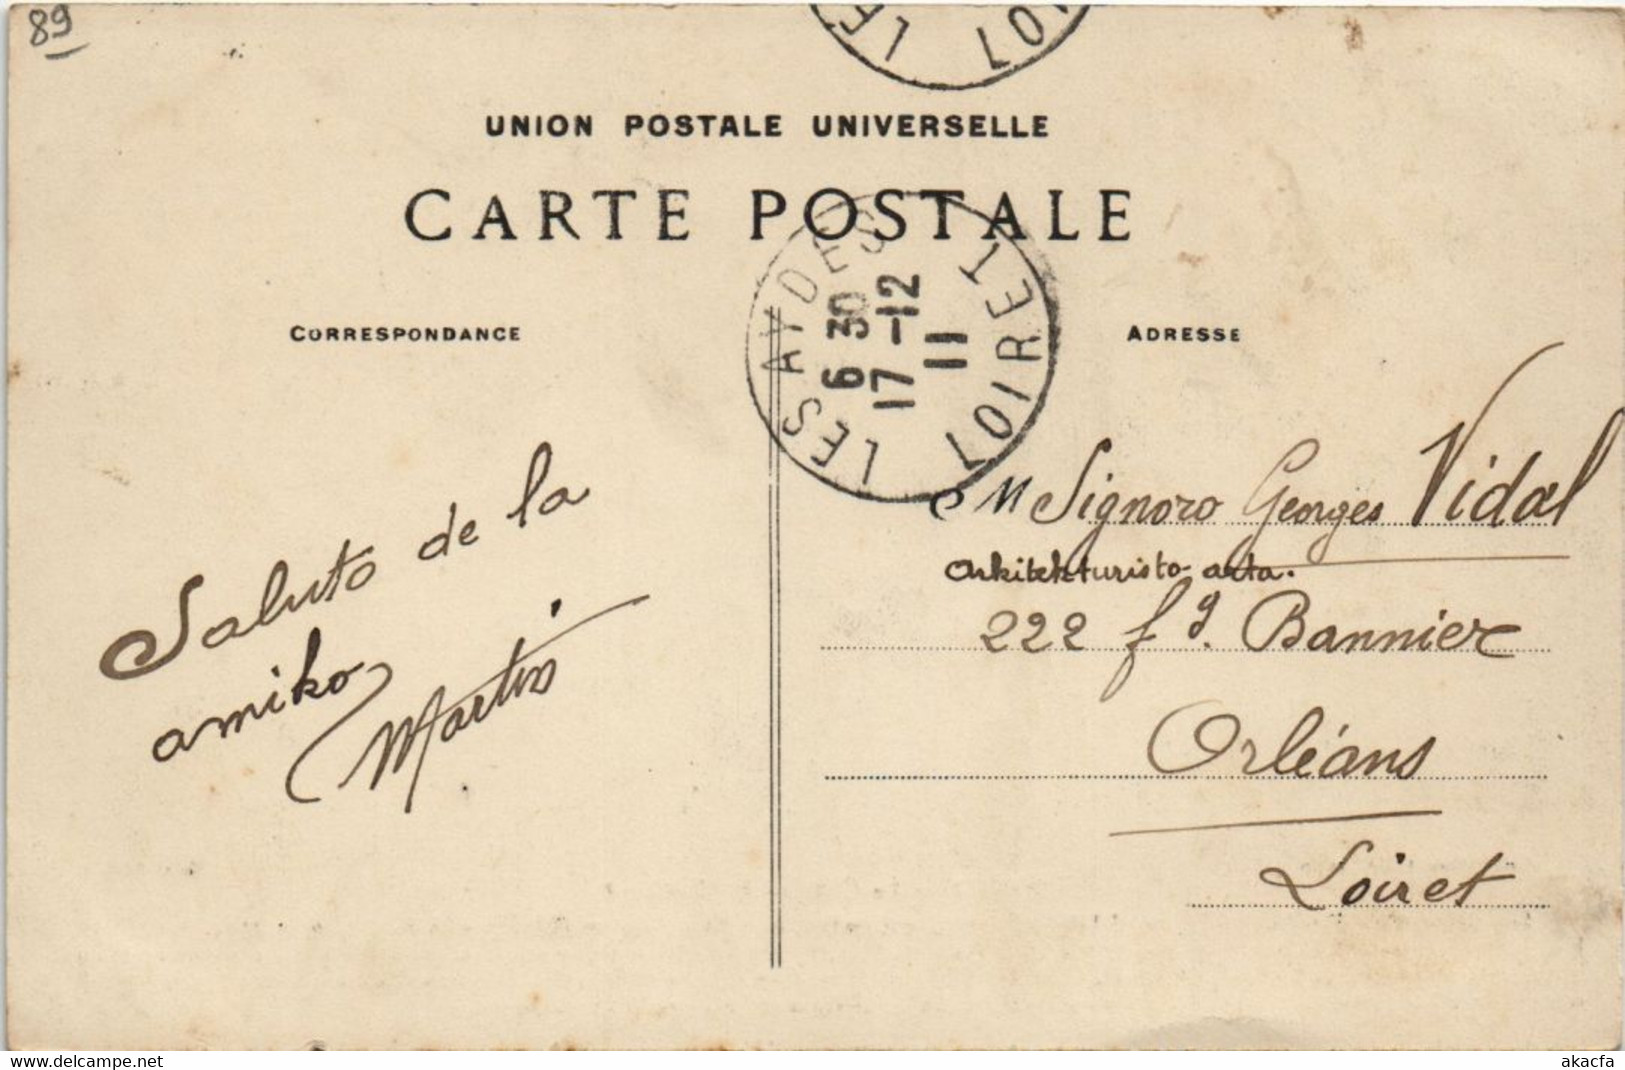 89
LES
07
UNION POSTALE UNIVERSELLE
CARTE POSTALE
CORRESPONDANCE
ADRESSE
LES AYDES
6 30
17 -12
11
LOIRET
Saluto de la
amiko
Martin
M Signoro Georges Vidal
Arkitekturisto arta.
222 fg. Bannier
Orléans
Loiret
www.delcampe.net
akacfa